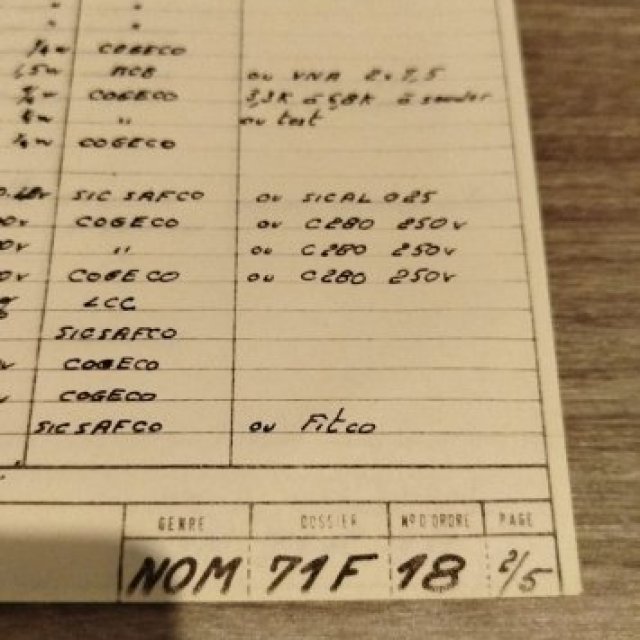 " "
1/4w COGECO
1,5w ACE ou VNA 2x7,5
1/4w COGECO 3,3K à 6,8K à souder
1/4w " ou test
1/4w COGECO
SIC SAFCO ou SICAL 025
COGECO ou C280 250v
" ou C280 250v
COGECO ou C280 250v
LCC
SICSAFCO
COGECO
COGECO
SICSAFCO ou Fitco
GENRE DOSSIER N° D'ORDRE PAGE
NOM 71F 18 2/5